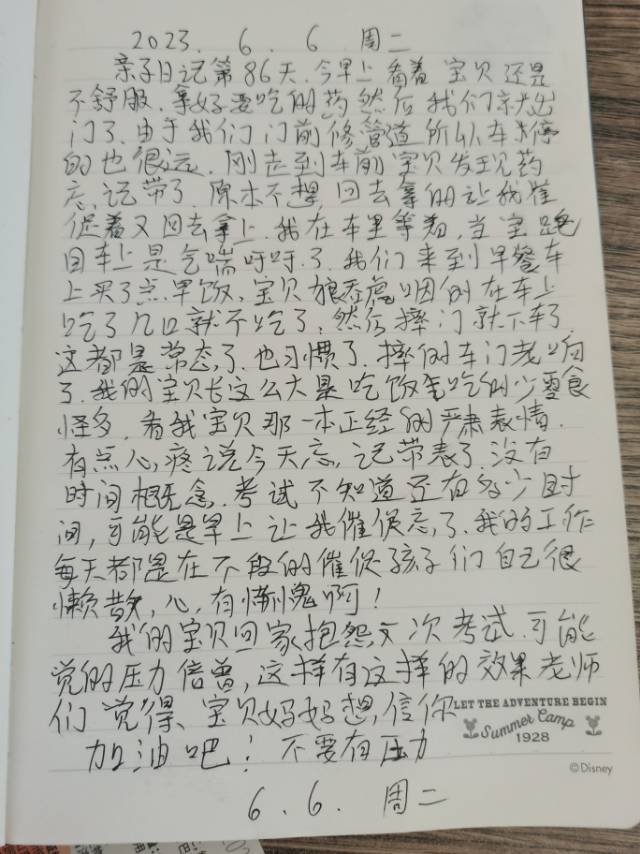 2023. 6. 6 周二
亲子日记第86天.今早上看着宝贝还是
不舒服.拿好要吃的药然后我们就出
门了.由于我们门前修管道所以车停
的也很远.刚走到车前宝贝发现药
忘记带了.原本不想回去拿的让我催
促着又回去拿上.我在车里等着,当宝跑
回车上是气喘吁吁了.我们来到早餐车
上买了点早饭,宝贝狼吞虎咽的在车上
吃了几口就不吃了.然后摔门就下车了
这都是常态了.也习惯了.摔的车门老响
了.我的宝贝长这么大是吃饭先吃的少零食
怪多.看我宝贝那一本正经的严肃表情.
有点心疼说今天忘记带表了.没有
时间概念.考试不知道还有多少时
间,可能是早上让我催促忘了.我的工作
每天都是在不段的催促孩子们自己很
懒散,心有惭愧啊!
我的宝贝回家抱怨文次考试.可能
觉的压力倍曽,这样有这样的效果老师
们觉得、宝贝好好想,信你
LET THE ADVENTURE BEGIN
Summer Camp
1928
加油吧!不要有压力
©Disney
6.6.周二